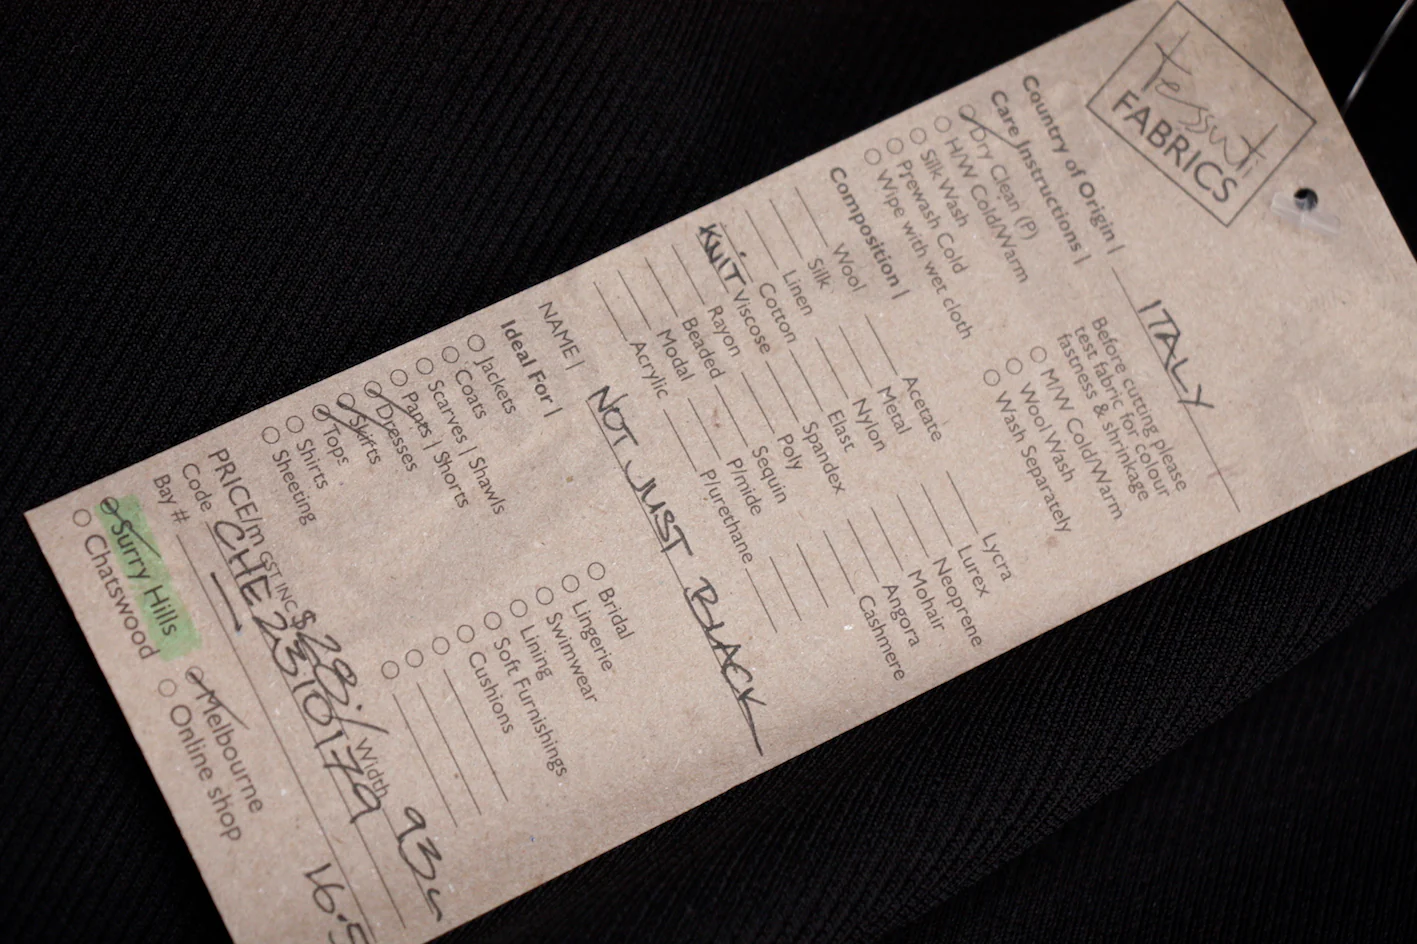 tessuti
FABRICS
Country of Origin | ITALY
Care Instructions |
Before cutting please
test fabric for colour
fastness & shrinkage
Dry Clean (P)
H/W Cold/Warm
Silk Wash
Prewash Cold
Wipe with wet cloth
M/W Cold/Warm
Wool Wash
Wash Separately
Composition |
Wool Acetate Lycra
Silk Metal Lurex
Linen Nylon Neoprene
Cotton Elast Mohair
KNIT Viscose Spandex Angora
Rayon Poly Cashmere
Beaded Sequin
Modal P/mide
Acrylic P/urethane
NAME | NOT JUST BLACK
Ideal For |
Jackets
Coats
Scarves | Shawls
Pants | Shorts
Dresses
Skirts
Tops
Shirts
Sheeting
Bridal
Lingerie
Swimwear
Lining
Soft Furnishings
Cushions
PRICE/m GST INC $28./ Width 93c
Code CHE2310179
Bay # 16.5
Surry Hills Melbourne
Chatswood Online shop